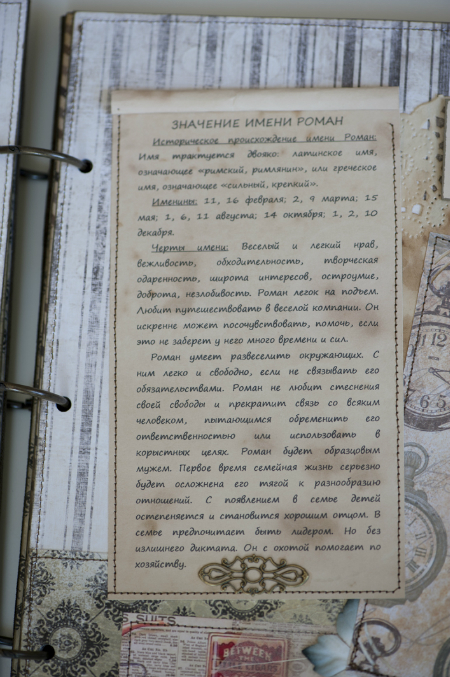 ЗНАЧЕНИЕ ИМЕНИ РОМАН
Историческое происхождение имени Роман:
Имя трактуется двояко: латинское имя,
означающее «римский, римлянин», или греческое
имя, означающее «сильный, крепкий».
Именины: 11, 16 февраля; 2, 9 марта; 15
мая; 1, 6, 11 августа; 14 октября; 1, 2, 10
декабря.
Черты имени: Веселый и легкий нрав,
вежливость, обходительность, творческая
одаренность, широта интересов, остроумие,
доброта, незлобивость. Роман легок на подъем.
Любит путешествовать в веселой компании. Он
искренне может посочувствовать, помочь, если
это не заберет у него много времени и сил.
Роман умеет развеселить окружающих. С
ним легко и свободно, если не связывать его
обязательствами. Роман не любит стеснения
своей свободы и прекратит связь со всяким
человеком, пытающимся обременить его
ответственностью или использовать в
корыстных целях. Роман будет образцовым
мужем. Первое время семейная жизнь серьезно
будет осложнена его тягой к разнообразию
отношений. С появлением в семье детей
остепеняется и становится хорошим отцом. В
семье предпочитает быть лидером. Но без
излишнего диктата. Он с охотой помогает по
хозяйству.
12
6 5
SUITS
BETWEEN
THE